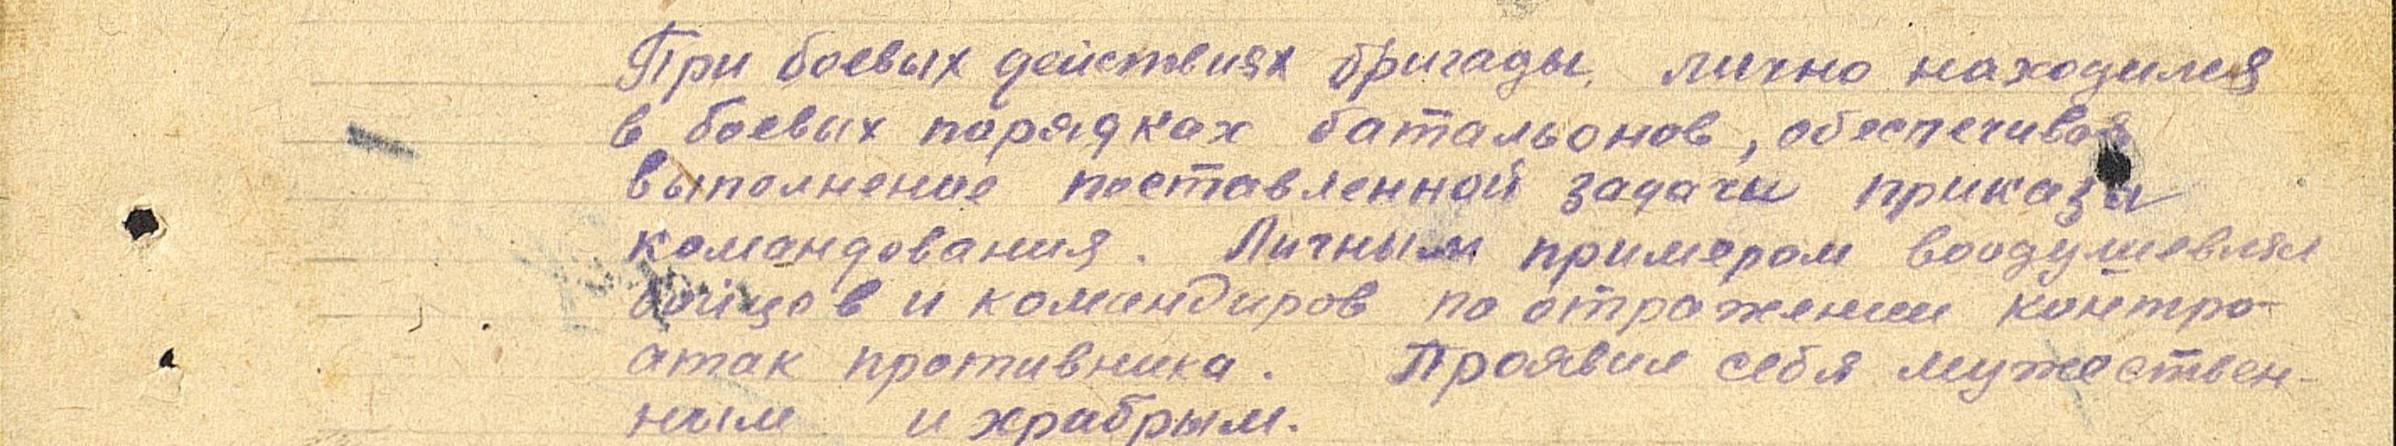 При боевых действиях бригады, лично находился
в боевых порядках батальонов, обеспечивая
выполнение поставленной задачи приказа
командования. Личным примером воодушевлял
бойцов и командиров по отражении контро-
атак противника. Проявил себя мужествен-
ным и храбрым.